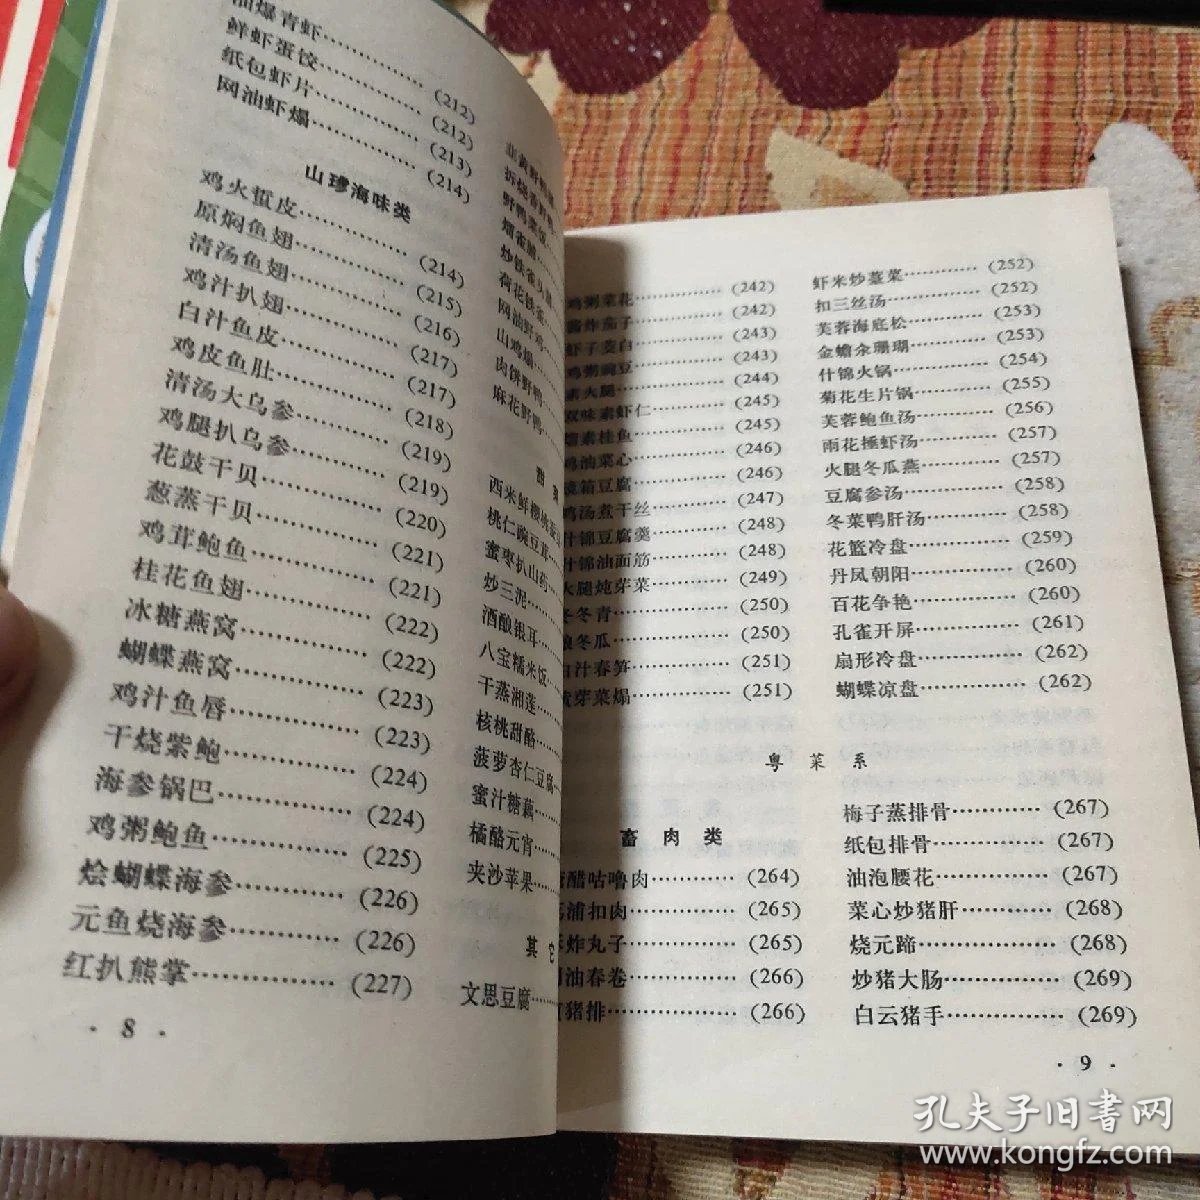 油爆青虾…………(212)
鲜虾蛋饺…………(212)
纸包虾片…………(213)
网油虾煸…………(214)
山珍海味类
鸡火蜇皮…………(214)
原焖鱼翅…………(215)
清汤鱼翅…………(216)
鸡汁扒翅…………(217)
白汁鱼皮…………(217)
鸡皮鱼肚…………(218)
清汤大乌参…………(219)
鸡腿扒乌参…………(219)
花鼓干贝…………(220)
葱蒸干贝…………(221)
鸡茸鲍鱼…………(221)
桂花鱼翅…………(222)
冰糖燕窝…………(222)
蝴蝶燕窝…………(223)
鸡汁鱼唇…………(223)
干烧紫鲍…………(224)
海参锅巴…………(224)
鸡粥鲍鱼…………(225)
烩蝴蝶海参…………(226)
元鱼烧海参…………(226)
红扒熊掌…………(227)
· 8 ·
野鸭菜饭
炒铁雀头
荷花铁雀
网油野鸡
山鸡煸
肉饼野鸭
麻花野鸭
甜
西米鲜樱桃
桃仁豌豆茸
蜜枣扒山药
炒三泥
酒酿银耳
八宝糯米饭
干蒸湘莲
核桃甜酪
菠萝杏仁豆腐
蜜汁糖藕
橘酪元宵
夹沙苹果
其它
文思豆腐
鸡粥菜花…………(242)
酱炸茄子…………(242)
虾子茭白…………(243)
鸡粥豌豆…………(243)
素火腿…………(244)
双味素虾仁…………(245)
素桂鱼…………(245)
鸡油菜心…………(246)
镜箱豆腐…………(246)
鸡汤煮干丝…………(247)
什锦豆腐羹…………(248)
什锦油面筋…………(248)
火腿炖芽菜…………(249)
冬冬青…………(250)
酿冬瓜…………(250)
白汁春笋…………(251)
黄芽菜煸…………(251)
虾米炒薹菜…………(252)
扣三丝汤…………(252)
芙蓉海底松…………(253)
金蟾汆珊瑚…………(253)
什锦火锅…………(254)
菊花生片锅…………(255)
芙蓉鲍鱼汤…………(256)
雨花捶虾汤…………(257)
火腿冬瓜燕…………(257)
豆腐参汤…………(258)
冬菜鸭肝汤…………(258)
花篮冷盘…………(259)
丹凤朝阳…………(260)
百花争艳…………(260)
孔雀开屏…………(261)
扇形冷盘…………(262)
蝴蝶凉盘…………(262)
粤菜系
畜肉类
糖醋咕噜肉…………(264)
荔浦扣肉…………(265)
炸丸子…………(265)
网油春卷…………(266)
猪排…………(266)
梅子蒸排骨…………(267)
纸包排骨…………(267)
油泡腰花…………(267)
菜心炒猪肝…………(268)
烧元蹄…………(268)
炒猪大肠…………(269)
白云猪手…………(269)
· 9 ·
孔夫子旧書网
www.kongfz.com